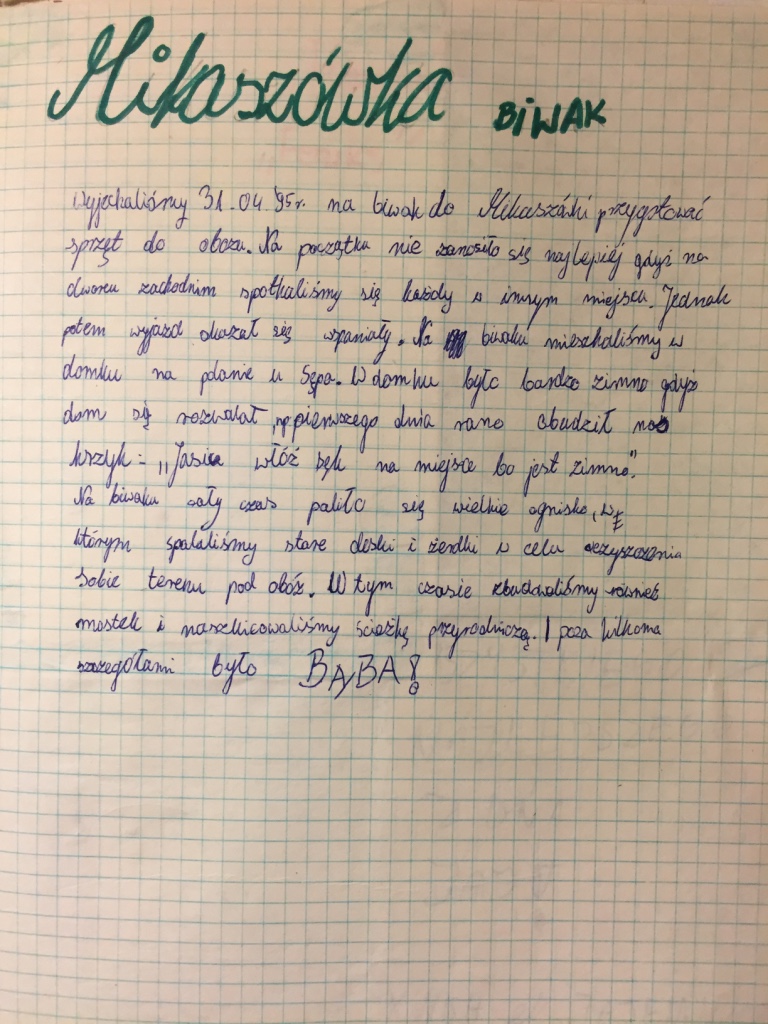 Mikaszówka BIWAK
Wyjechaliśmy 31.04.'95r. na biwak do Mikaszówki przygotować
sprzęt do obozu. Na początku nie zanosiło się najlepiej gdyż na
dworcu zachodnim spotkaliśmy się każdy w innym miejscu. Jednak
potem wyjazd okazał się wspaniały. Na biwaku mieszkaliśmy w
domku na polanie u Sępa. W domku było bardzo zimno gdyż
dom się rozwalał, np pierwszego dnia rano obudził nas
krzyk: „Jasiu włóż sęk na miejsce bo jest zimno".
Na biwaku cały czas paliło się wielkie ognisko, w
którym spalaliśmy stare deski i żerdki w celu oczyszczenia
sobie terenu pod obóz. W tym czasie zbudowaliśmy również
mostek i naszkicowaliśmy ścieżkę przyrodniczą. I poza kilkoma
szczegółami było BĄBA!